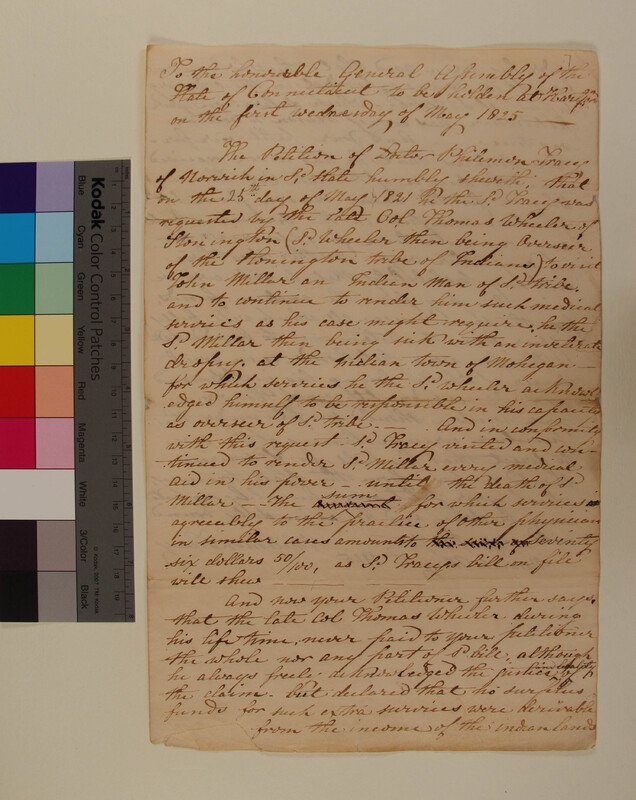 To the honourable General Assembly of the
State of Connecticut to be holden at Hartford
on the first wednesday of May 1825
The Petition of Doctor Philemon Tracy
of Norwich in Sd. State humbly sheweth, that
on the 25th day of May 1821 he the Sd. Tracy was
requested by the late Col. Thomas Wheeler of
Stonington (Sd. Wheeler then being Overseer
of the Stonington tribe of Indians) to visit
John Millar an Indian Man of Sd. tribe.
and to continue to render him such medical
services as his case might require, he the
Sd. Millar then being sick with an inveterate
dropsy. at the Indian town of Mohegan —
for which services he the Sd. Wheeler acknowl
edged himself to be responsible in his capacity
as overseer of Sd. tribe. — And in conformity
with this request Sd. Tracy visited and con-
tinued to render Sd. Millar every medical
aid in his power — until the death of Sd.
Millar — The sum for which services
agreeably to the practice of other physicians
in similar cases amounts to seventy
six dollars 50/100, as Sd. Tracys bill on file
will shew
And now your Petitioner further says,
that the late Col Thomas Wheeler during
his life time, never paid to your petitioner
the whole nor any part of Sd. bill, although
he always freely acknowledged the justice of
the claim. but declared that no surplus
funds for such extra services were derivable
from the income of the indian lands
Kodak Color Control Patches
Blue
Cyan
Green
Yellow
Red
Magenta
White
3/Color
Black